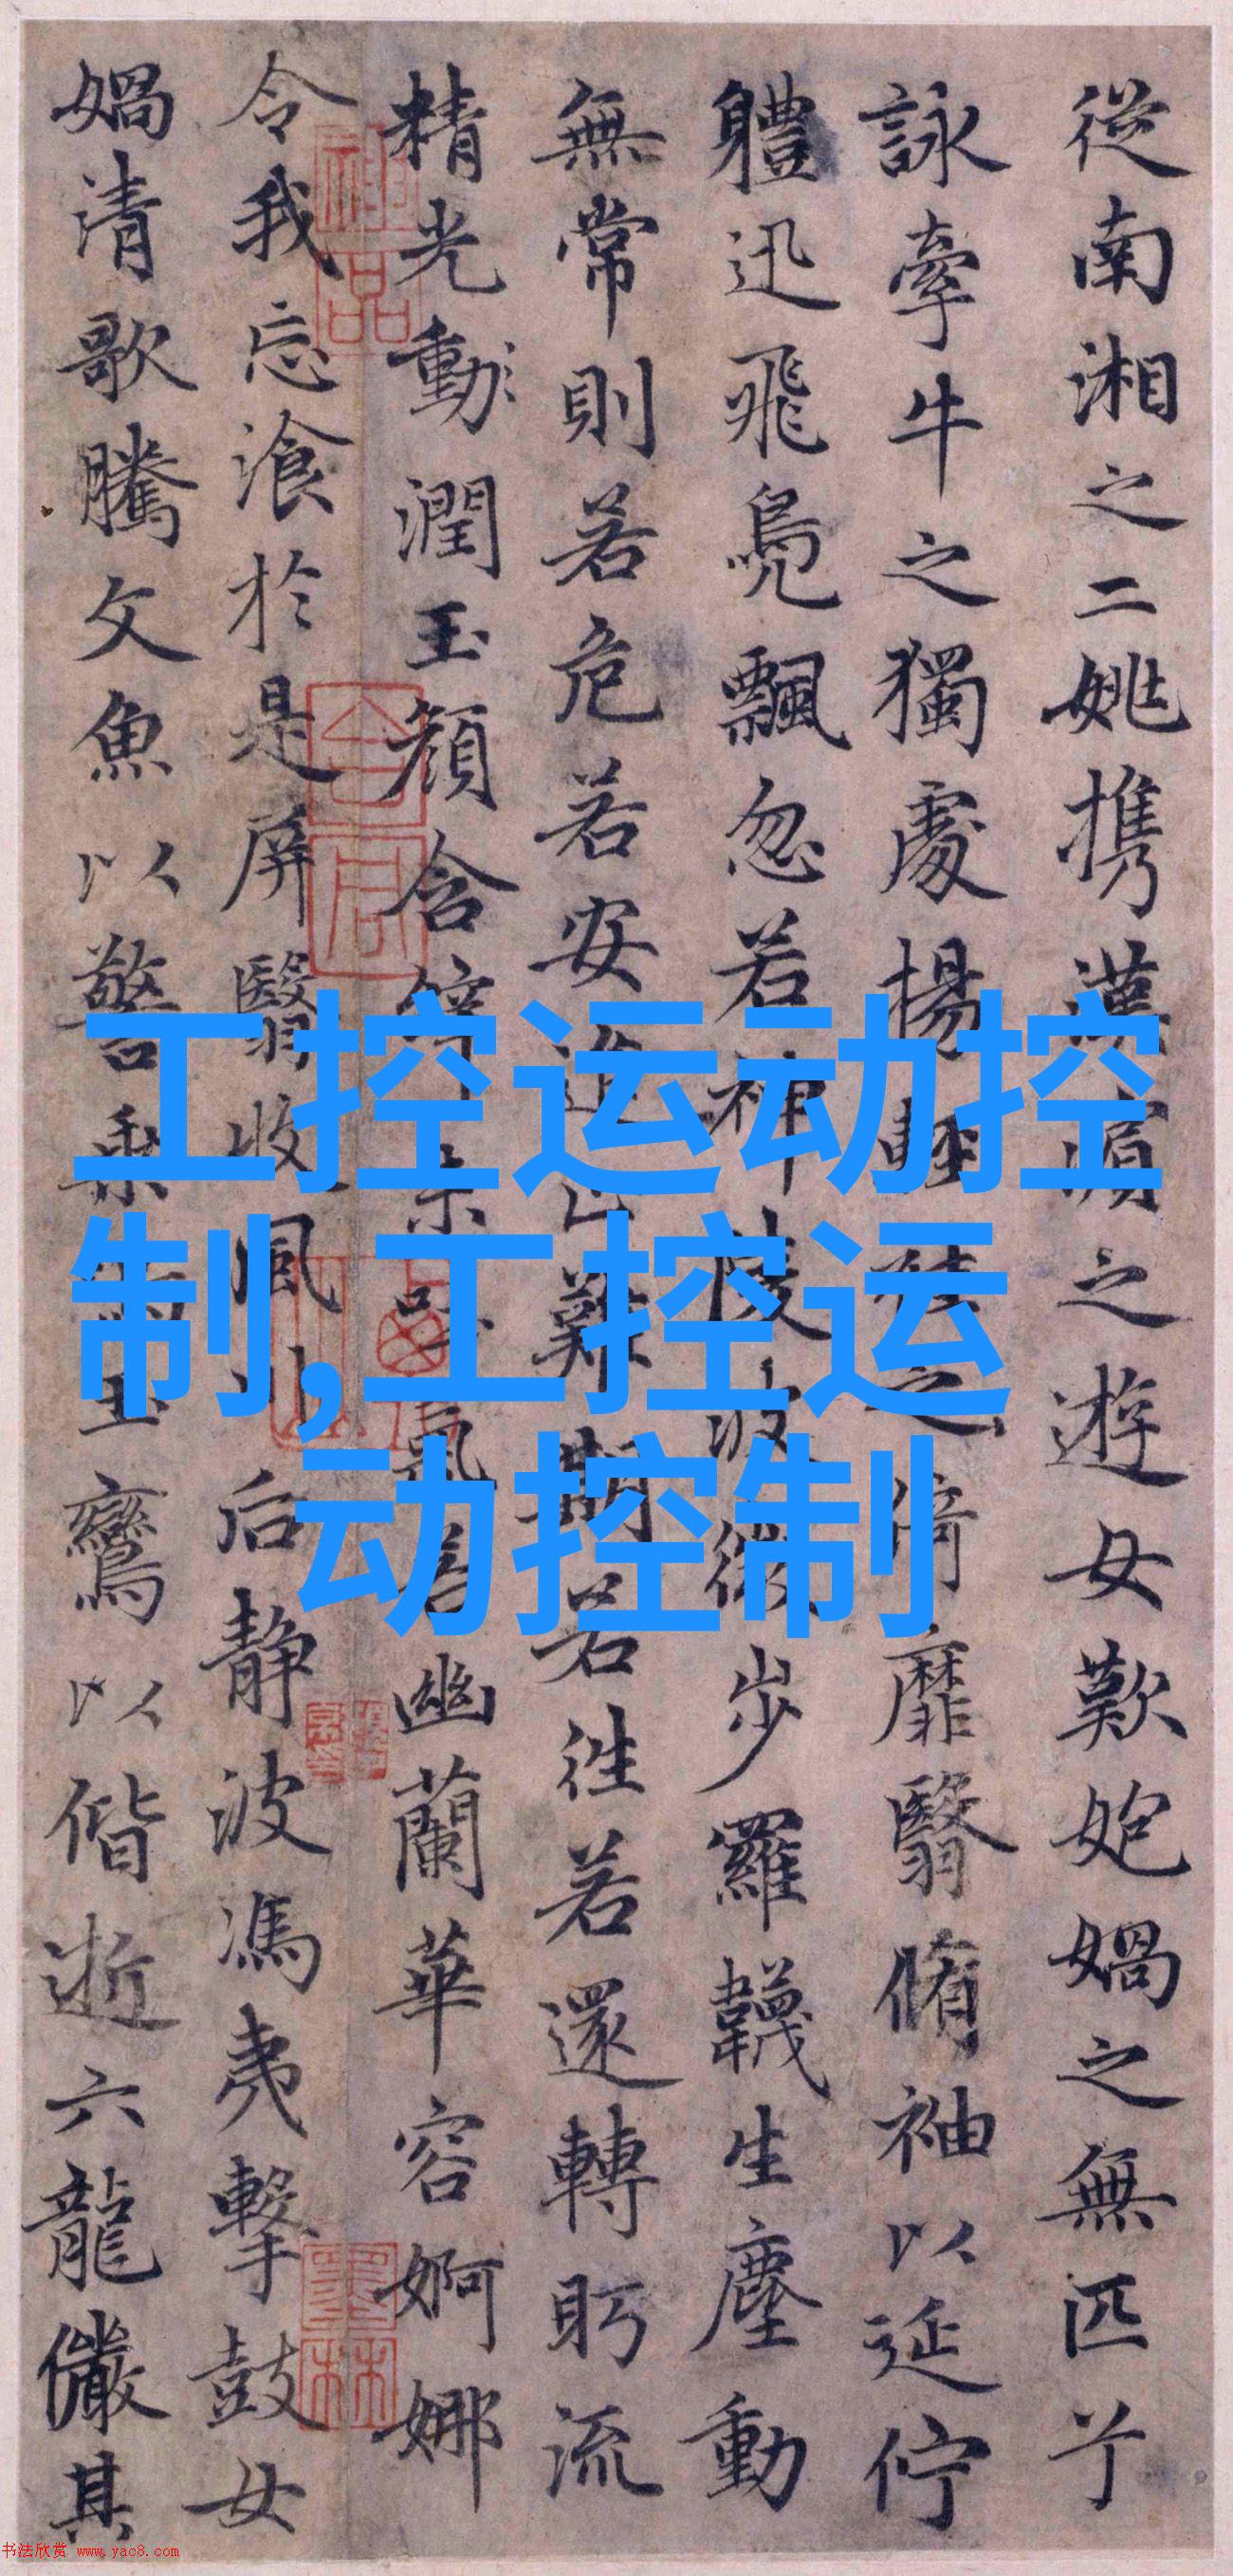 從南湘之二姚携漢濱之遊女歎媧之無匹兮
詠牽牛之獨處揚輕袿之倚靡翳脩袖以延佇
軆迅飛鳧飄忽若神陵波微步羅韈生塵動
無常則若危若安進止難期若往若還轉眄流
精光動潤玉顏含辭未吐氣若幽蘭華容婀娜
令我忘飡於是屏翳收風川后靜波馮夷擊鼓女
媧清歌騰文魚以警乘鳴玉鸞以偕逝六龍儼其
工控运动控
制,工控运
动控制
神品
墨林
书法欣赏 www.yac8.com